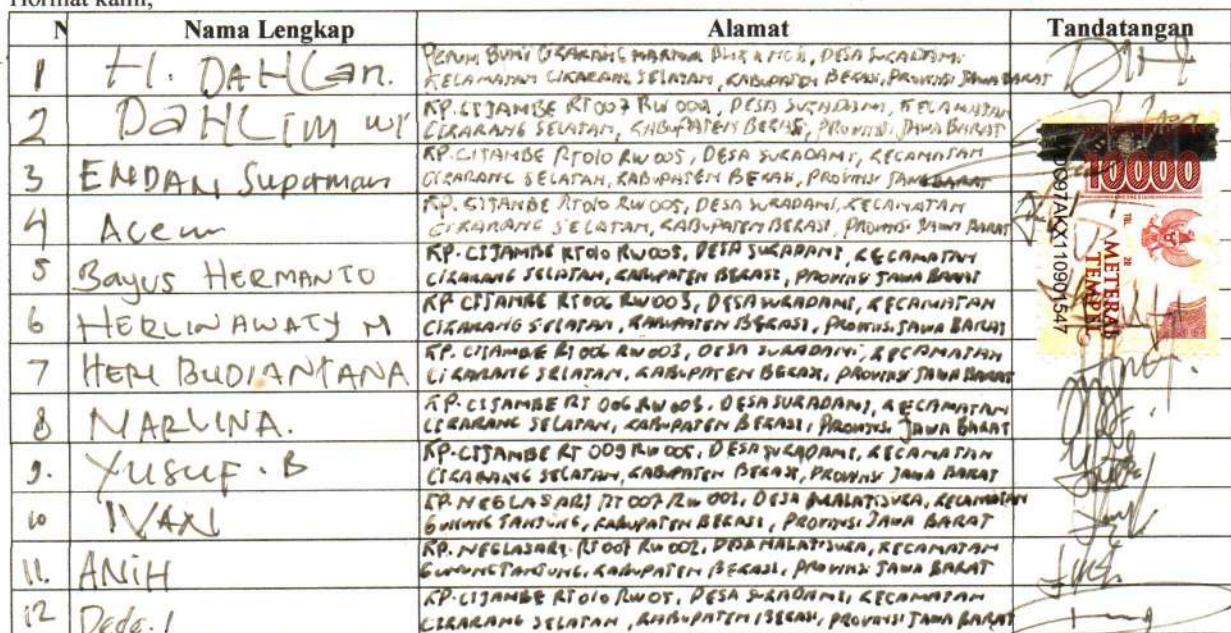 Hormat kami,
N Nama Lengkap Alamat Tandatangan
1 H. DAHLan. PERUM BUMI CIKARANG MAKMUR BLOK DESA SUKADAMI
KECAMATAN CIKARANG SELATAN, KABUPATEN BEKASI, PROVINSI JAWA BARAT
2 DaHLIM KP. CIJAMBE RT 007 RW 002, DESA SUKADAMI, KECAMATAN
CIKARANG SELATAN, KABUPATEN BEKASI, PROVINSI JAWA BARAT
3 ENDAN Suparman KP. CIJAMBE RT 010 RW 005, DESA SUKADAMI, KECAMATAN
CIKARANG SELATAN, KABUPATEN BEKASI, PROVINSI JAWA BARAT
4 Acem KP. CIJAMBE RT 010 RW 005, DESA SUKADAMI, KECAMATAN
CIKARANG SELATAN, KABUPATEN BEKASI, PROVINSI JAWA BARAT
5 Bayus HERMANTO KP. CIJAMBE RT 010 RW 005, DESA SUKADAMI, KECAMATAN
CIKARANG SELATAN, KABUPATEN BEKASI, PROVINSI JAWA BARAT
6 HERLINAWATY M KP CIJAMBE RT 006 RW 003, DESA SUKADAMI, KECAMATAN
CIKARANG SELATAN, KABUPATEN BEKASI, PROVINSI JAWA BARAT
7 HERI BUDIANTANA KP. CIJAMBE RT 006 RW 003, DESA SUKADAMI, KECAMATAN
CIKARANG SELATAN, KABUPATEN BEKASI, PROVINSI JAWA BARAT
8 MARLINA. KP. CIJAMBE RT 006 RW 003, DESA SUKADAMI, KECAMATAN
CIKARANG SELATAN, KABUPATEN BEKASI, PROVINSI JAWA BARAT
9. YUSUF. B KP. CIJAMBE RT 009 RW 005, DESA SUKADAMI, KECAMATAN
CIKARANG SELATAN, KABUPATEN BEKASI, PROVINSI JAWA BARAT
10 IVAN KP. NEGLASARI RT 007 RW 002, DESA MALATISUKA, KECAMATAN
GUNUNG TANJUNG, KABUPATEN BEKASI, PROVINSI JAWA BARAT
11. ANIH KP. NEGLASARI RT 007 RW 002, DESA MALATISUKA, KECAMATAN
GUNUNG TANJUNG, KABUPATEN BEKASI, PROVINSI JAWA BARAT
12 Dede. I KP. CIJAMBE RT 010 RW 05, DESA SUKADAMI, KECAMATAN
CIKARANG SELATAN, KABUPATEN BEKASI, PROVINSI JAWA BARAT
10000
TGL 20
METERAI
TEMPEL
DD97AKX110901547